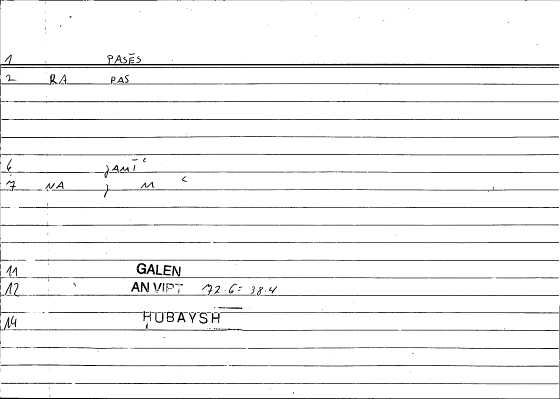 1 PASĒS
2 RA PAS
6 ȷAMĪʿ
7 NA ȷ M ʿ
11 GALEN
12 AN VIRT 72.6 = 38.4
14 ḤUBAYSH